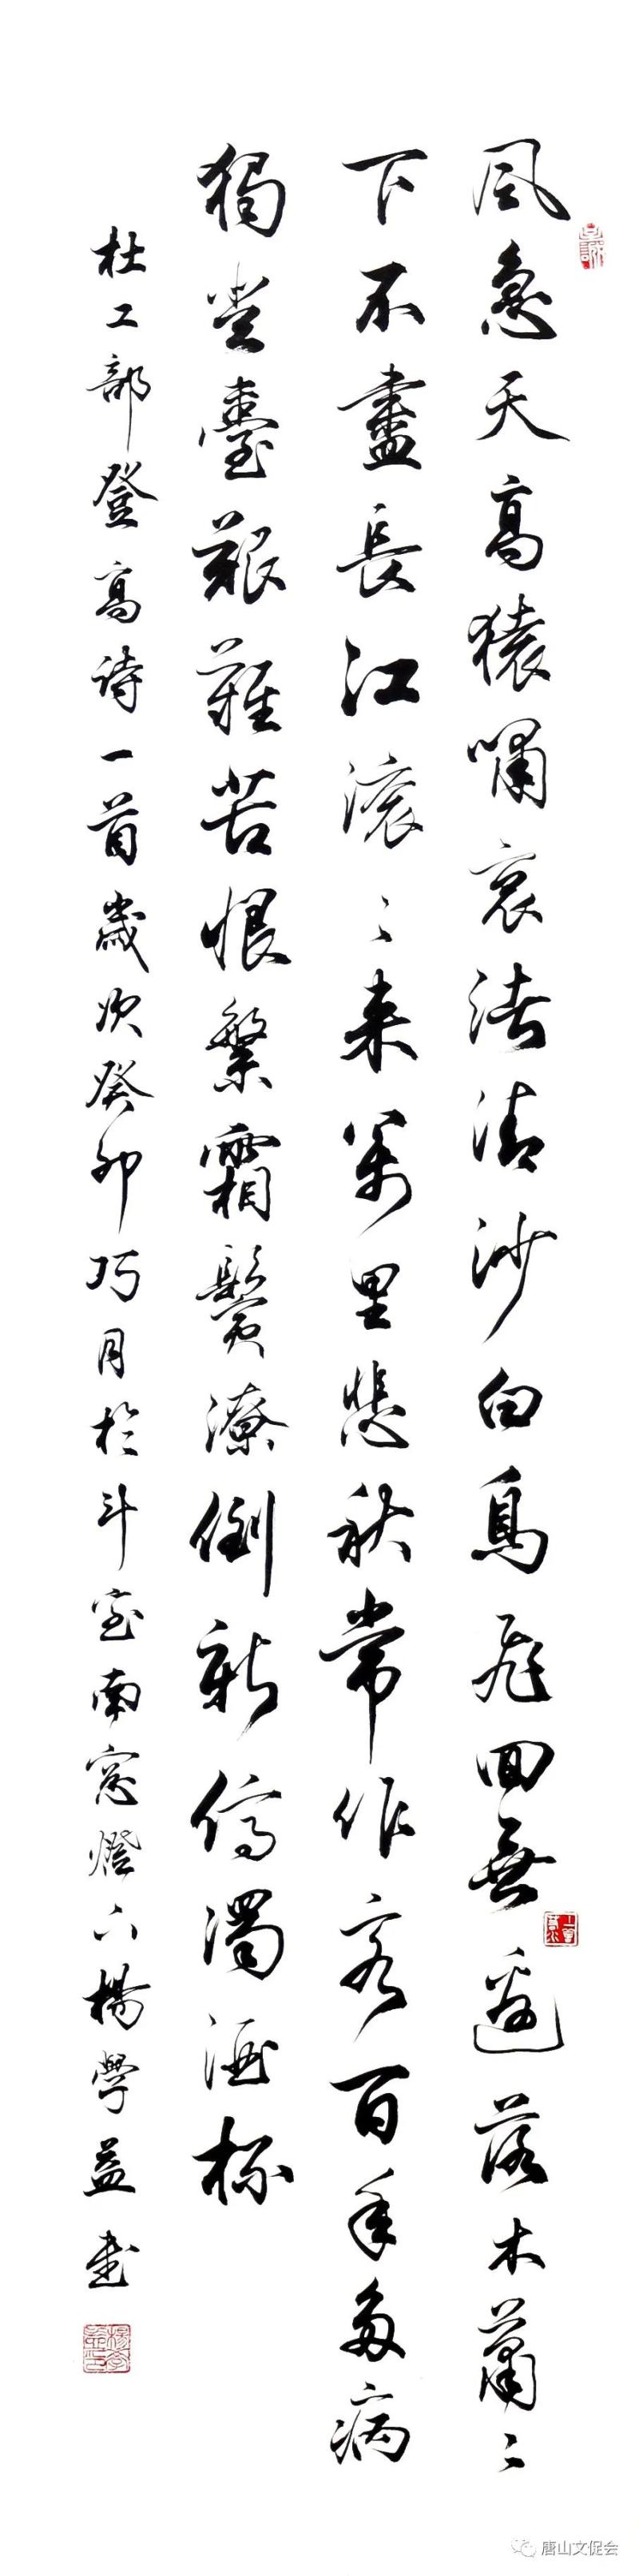 風急天高猿嘯哀渚清沙白鳥飛回無邊落木蕭〻
下不盡長江滾〻来萬里悲秋常作客百年多病
獨登臺艱難苦恨繁霜鬢潦倒新停濁酒杯
杜工部登高诗一首歲次癸卯巧月於斗室南窓燈下楊學益书
唐山文促会